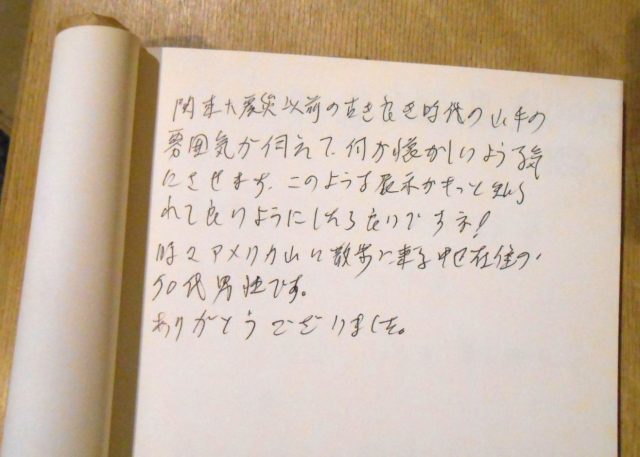 関東大震災以前の古き良き時代の山手の
雰囲気が伺えて、何か懐かしいような気
にさせます。このような展示がもっと知ら
れて良いようにしたら良いですネ!
時々アメリカ山に散歩に来る中区在住の、
50代男性です。
ありがとうございました。